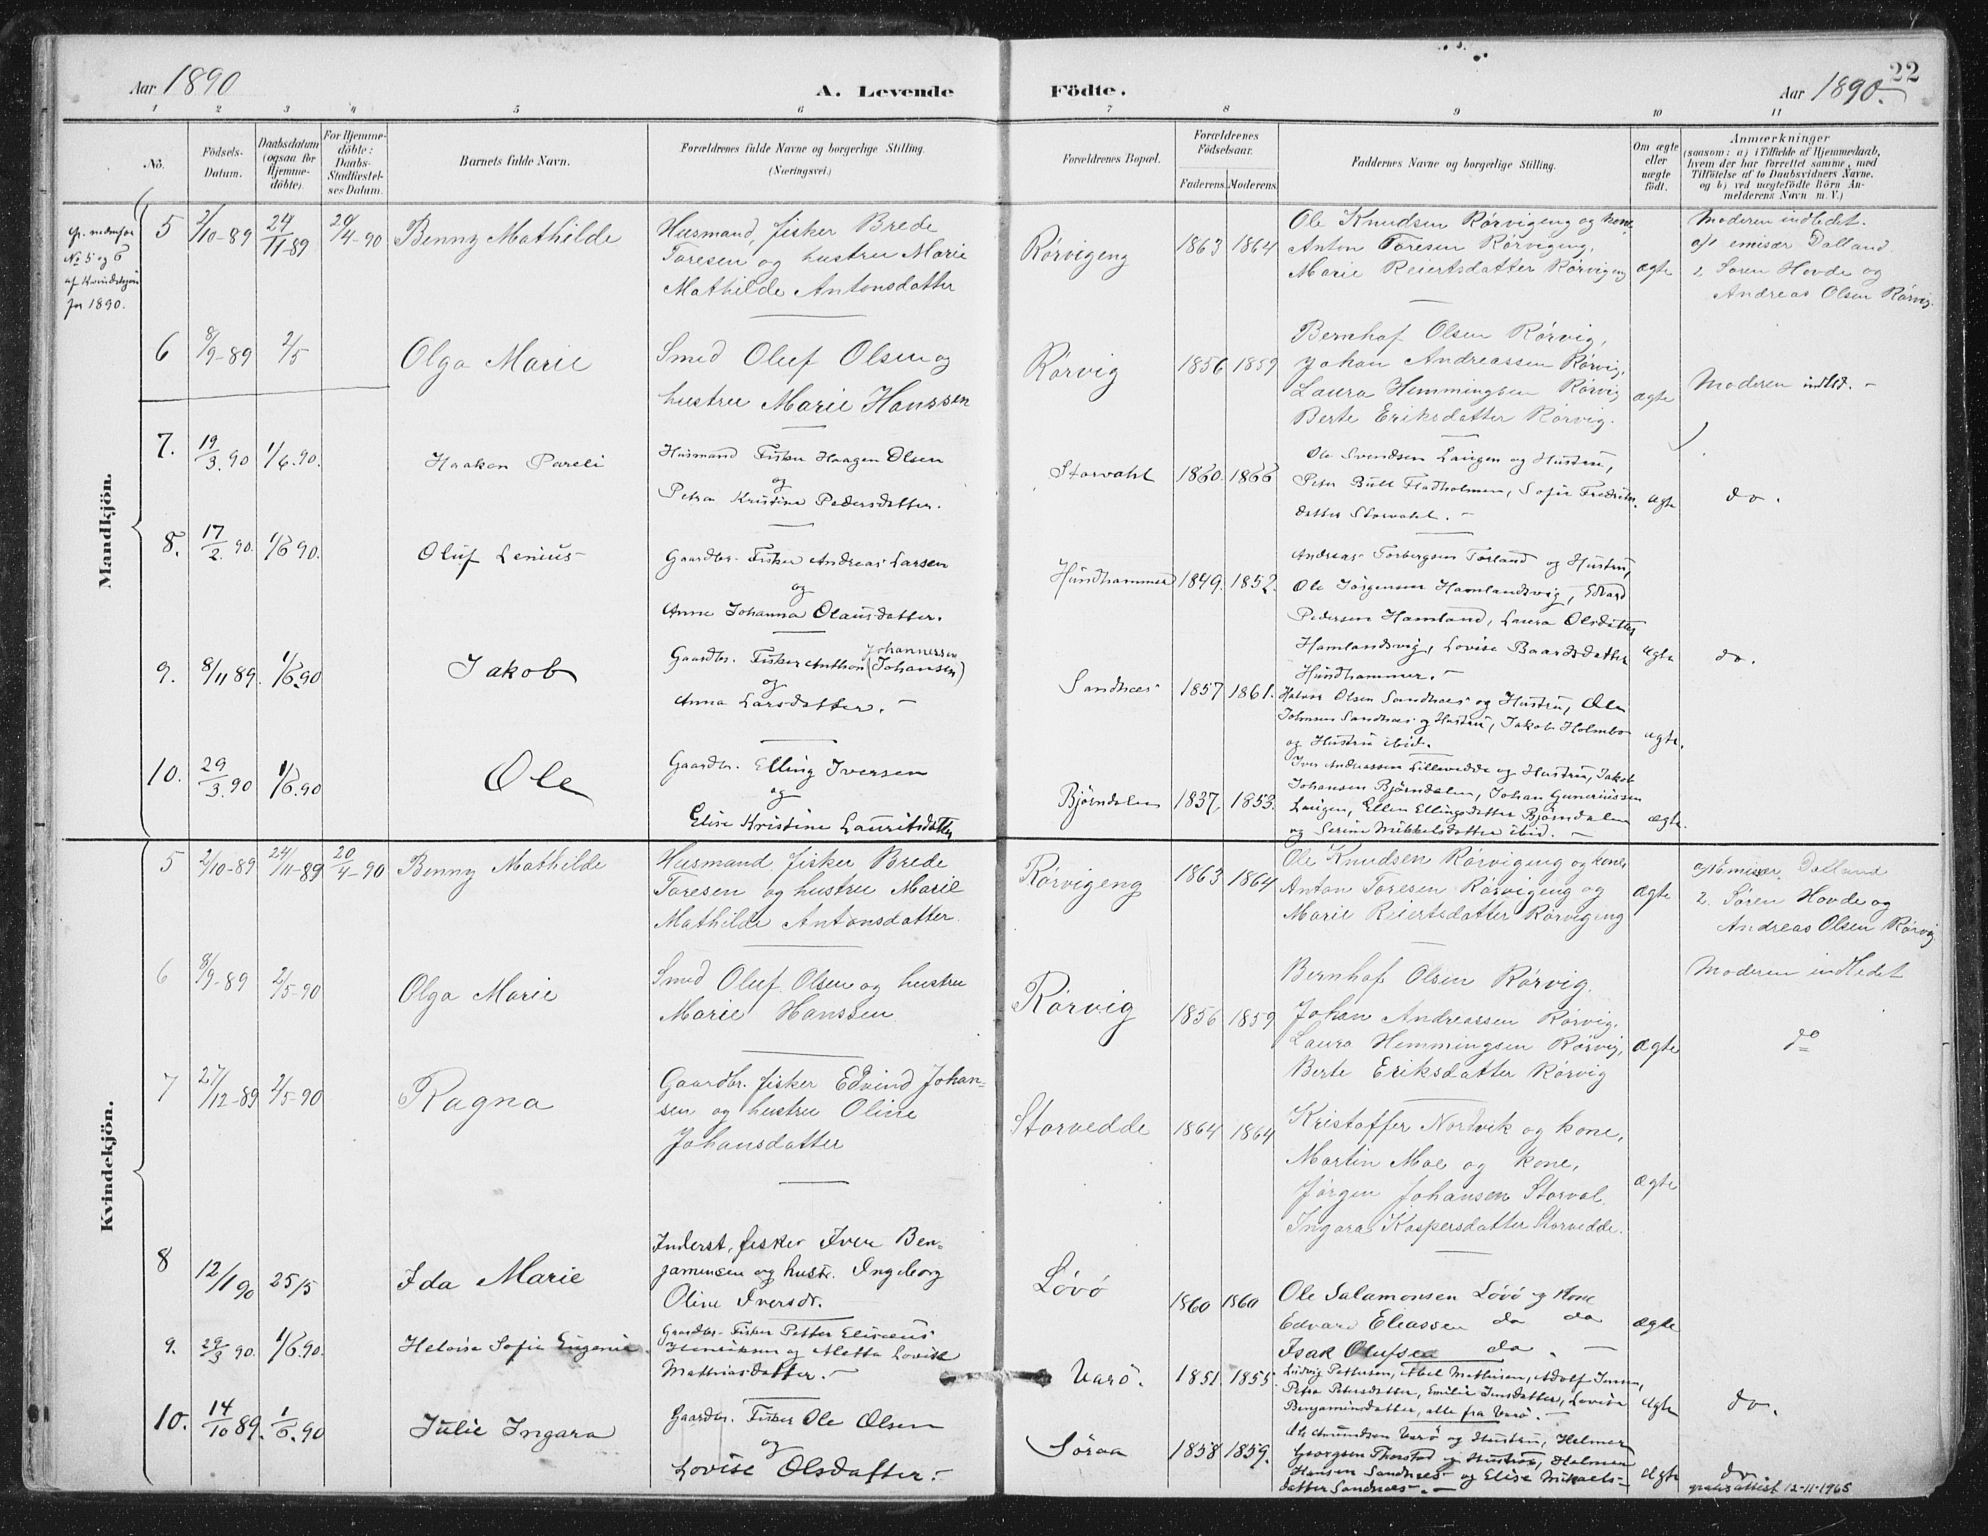 Aar 1890
A. Levende
Födte.
Aar 1890.
22
1 2 3 4 5 6 7 8 9 10 11
No.
Födsels-
Datum.
Daabsdatum
(ogsaa for
Hjemme-
döbte).
For Hjemme-
döbte:
Daabs-
Stadfæstel-
ses Datum.
Barnets fulde Navn.
Forældrenes fulde Navne og borgerlige Stilling.
(Næringsvei.)
Forældrenes Bopæl.
Forældrenes
Födselsaar.
Faderens. Moderens.
Faddernes Navne og borgerlige Stilling.
Om ægte
eller
uægte
födt.
Anmærkninger
(saasom: a) i Tilfælde af Hjemmedaab,
hvem der har forrettet samme, med
Tilföielse af to Daabsvidners Navne,
og b) ved uægtefödte Börn An-
melderens Navn m. V.)
Mandkjön.
No 5 og 6
af Kvindekjøn
for 1890.
5 2/10-89 24/11 89 20/4-90 Benny Mathilde
Husmand, fisker Brede
Toresen og hustru Marie
Mathilde Antonsdatter
Rørvigeng 1863 1864
Ole Knudsen Rørvigeng og kone,
Anton Toresen Rørvigeng,
Marie Reiertsdatter Rørvigeng
ægte
Moderen indledet.
emisær Dalland
2. Søren Hovde og
Andreas Olsen Rørvig.
6 8/9-89 2/5 Olga Marie
Smed Oluf Olsen og
hustru Marie Hanssen
Rørvig 1856 1859
Bernhof Olsen Rørvig,
Johan Andreassen Rørvig,
Laura Hemmingsen Rørvig
Berte Eriksdatter Rørvig.
ægte
Moderen indled. -
7. 19/3.90 1/6.90. Haakon Pareli
Husmand Fisker Haagen Olsen
og
Petra Kristine Pedersdatter.
Storvahl 1860. 1866
Ole Svendsen Laugen og Hustru,
Peter Bull Fladholmen, Sofie Fredriks-
datter Storvahl. -
ægte
do.
8. 17/2.90. 1/6 90. Oluf Lenius
Gaardbr. Fisker Andreas Larsen
og
Anne Johanna Olausdatter.
Hundhammer 1849. 1852.
Andreas Torbergsen Torland og Hustru,
Ole Jørgensen Hamlandsvig, Edvard
Pedersen Hamland, Laura Olsdatter
Hamlandsvig, Lovise Baardsdatter
Hundhammer. -
ægte
do.
9. 8/11 89. 1/6.90 Jakob
Gaardbr. Fisker Anthon (Johansen)
Johannessen
og
Anna Larsdatter. -
Sandnæs 1857 1861.
Halvor Olsen Sandnæs og Hustru, Ole
Johnsen Sandnæs og Hustru, Jakob Holmbo
og Hustru ibid.
ægte.
10. 29/3.90 1/6.90 Ole
Gaardbr. Elling Iversen
og
Elise Kristine Lauritsdatter
Bjørndalen 1837. 1853.
Iver Andreassen Lillevedde og Hustru, Jakob
Johansen Bjørndalen, Johan Guneriussen
Laugen, Ellen Ellingsdatter Bjørndalen
og Serine Mikkelsdatter ibid. -
ægte.
Kvindekjön.
5 2/10-89 24/11-89 20/4-90 Benny Mathilde
Husmand, fisker Brede
Toresen og hustru Marie
Mathilde Antonsdatter.
Rørvigeng 1863 1864
Ole Knudsen Rørvigeng og kone,
Anton Toresen Rørvigeng og
Marie Reiertsdatter Rørvigeng
ægte
emisær Dalland
2. Søren Hovde og
Andreas Olsen Rørvig
6 8/9-89 2/5-90 Olga Marie
Smed Oluf Olsen og hustru
Marie Hanssen
Rørvig 1856 1859
Bernhof Olsen Rørvig.
Johan Andreassen Rørvig.
Laura Hemmingsen Rørvig,
Berte Eriksdatter Rørvig
ægte
Moderen indledet
do
7 27/12-89 2/5-90 Ragna
Gaardbr. fisker Edvind Johan-
sen og hustru Oline
Johansdatter
Storvedde 1864 1864
Kristoffer Nordvik og kone,
Martin Moe og kone,
Jørgen Johansen Storval
Ingara Kaspersdatter Storvedde.
ægte
8 12/1 90 25/5 Ida Marie
Inderst, fisker Iver Ben-
jaminsen og hustr. Ingeborg
Oline Iversdr.
Løvø 1860 1860
Ole Salamonsen Løvø og Kone
Edvard Eliassen do do
Isak Olufsen do. -
ægte
9. 29/3 90. 1/6.90. Heloise Sofie Eugenie
Gaardbr. Fisker Petter Elisæus
Henriksen og Aletta Lovise
Mathiasdatter. -
Varø. 1851. 1855.
Ludvig Pettersen, Abel Mathisen, Adolf Jensen,
Petra Petersdatter, Emilie Jensdatter, Lovise
Benjaminsdatter, alle fra Varø. -
ægte
do.
10. 14/10 89. 1/6.90 Julie Ingara
Gaardbr. Fisker Ole Olsen
og
Lovise Olsdatter. -
Søraa 1858 1859.
Ole Amundsen Varø og Hustru, Helmer
Georgsen Thorstad og Hustru, Halmer
Hansen Sandnæs og Elise Mikaels-
datter Sandnæs. -
ægte
do.
gratis attest 12-11-1965